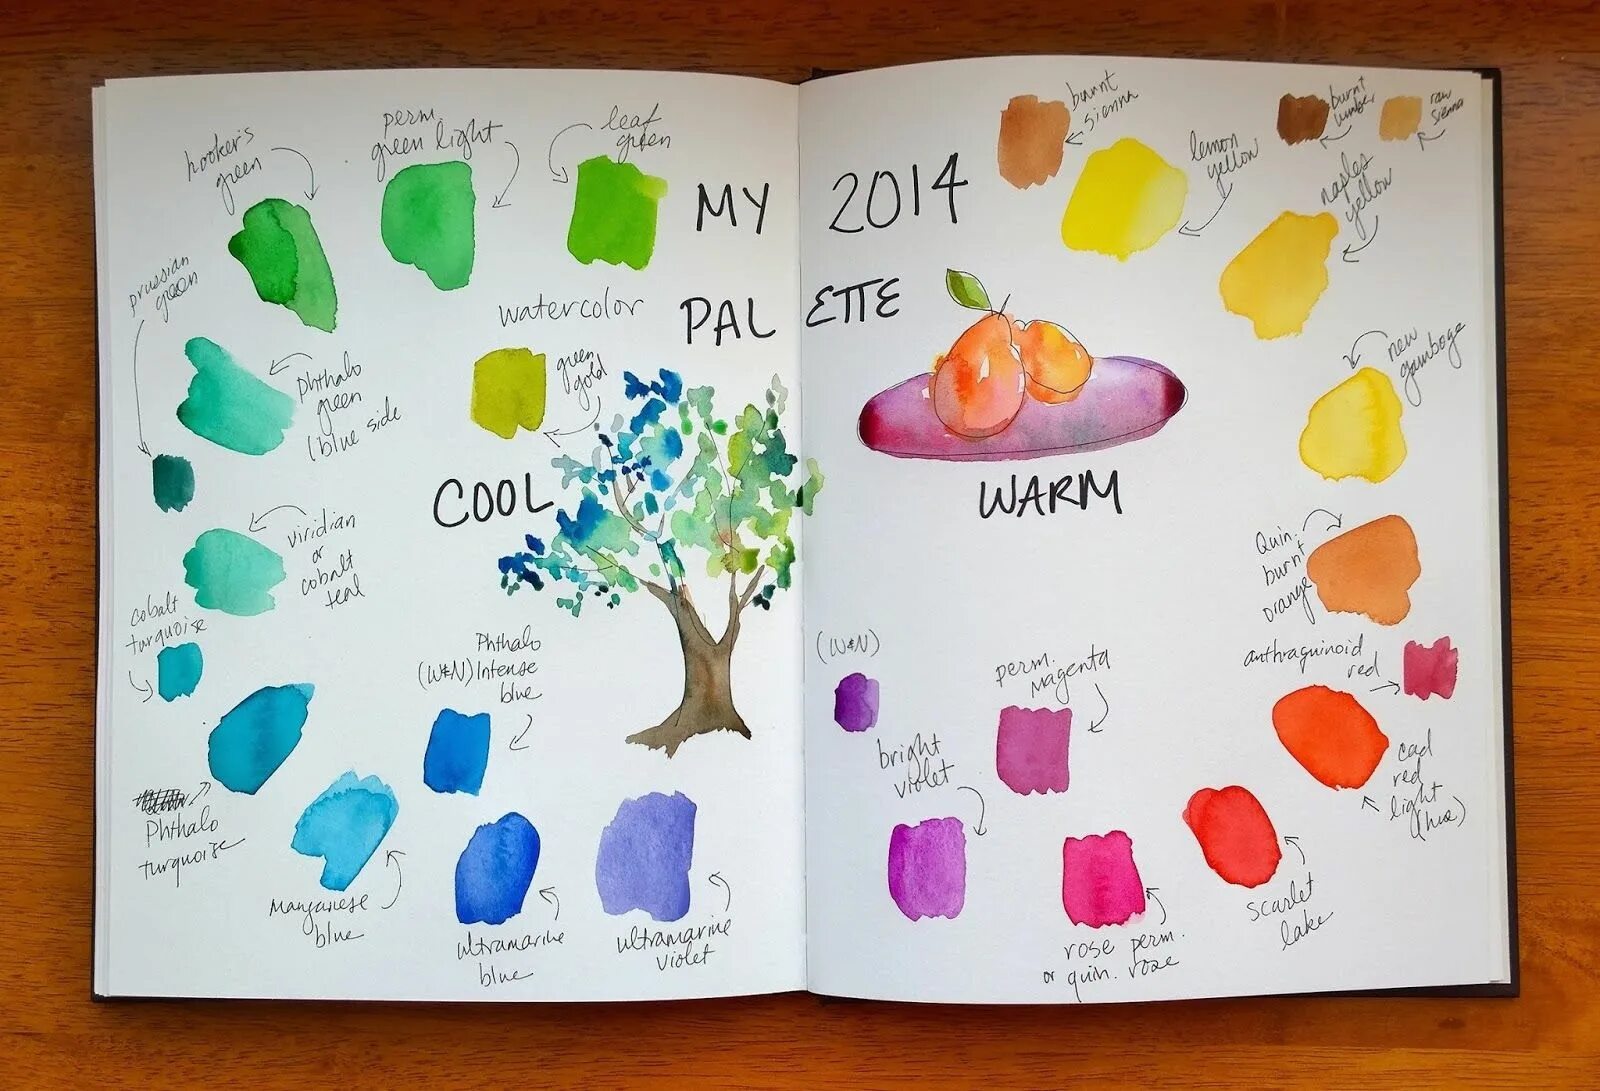 hooker's
green
perm.
green light
leaf
green
MY
prussian
green
watercolor
PAL
phthalo
green
(blue side
green
gold
COOL
viridian
or
cobalt
teal
cobalt
turquoise
Phthalo
(W&N) Intense
blue
Phthalo
turquoise
Manganese
blue
ultramarine
blue
ultramarine
violet
2014
burnt
sienna
burnt
umber
raw
sienna
lemon
yellow
naples
yellow
ETTE
new
gamboge
WARM
Quin.
burnt
orange
(W&N)
perm.
Magenta
anthraquinoid
red
bright
violet
cad
red
light
(hue)
scarlet
lake
rose perm.
or quin. rose